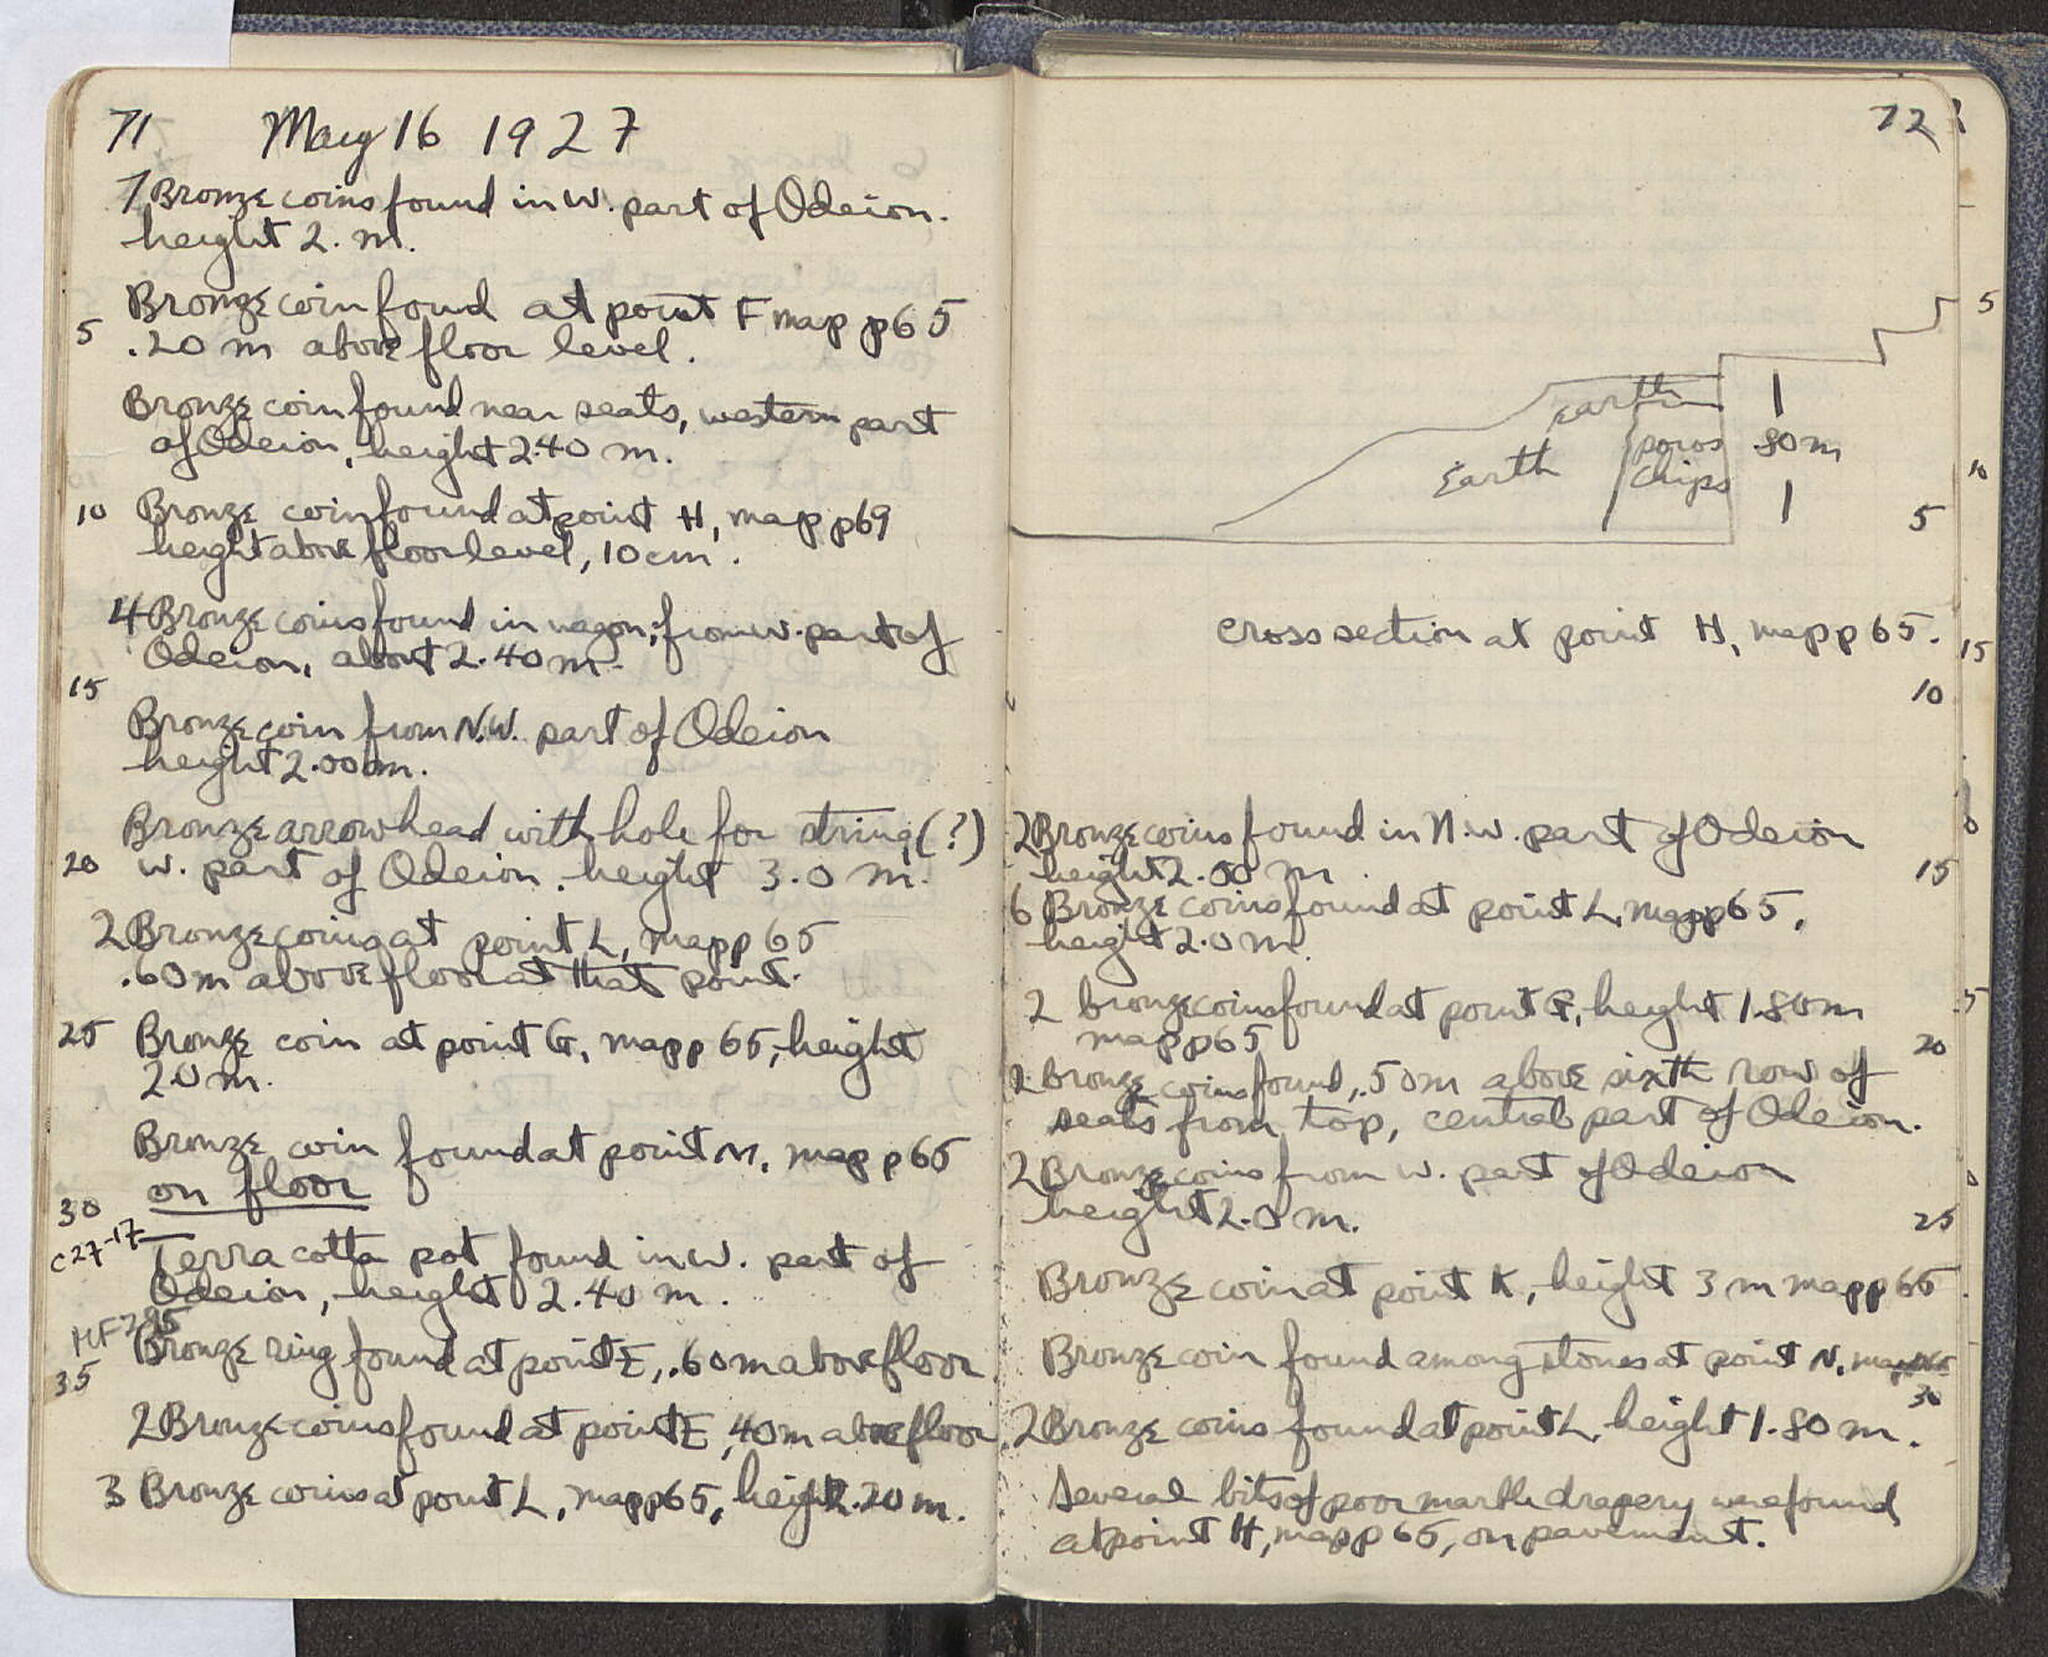 71 May 16 1927
7 Bronze coins found in W. part of Odeion.
height 2. m.
Bronze coin foud at point F map p65
5 .20 m above floor level.
Bronze coin found near seats, western part
of Odeion, height 2.40 m.
10 Bronze coin found at point H, map p69
height above floor level, 10 cm.
4 Bronze coins found in wagon, from w. part of
Odeion, about 2.40 m.
15
Bronze coin from N.W. part of Odeion
height 2.00 m.
Bronze arrowhead with hole for string (?)
20 w. part of Odeion. height 3.0 m.
2 Bronze coins at point L, map p 65
.60 m above floor at that point.
25 Bronze coin at point G, map p 65, height
2.0 m.
Bronze coin found at point M, map p 65
on floor
30
C27-17 Terra cotta pot found in W. part of
Odeion, height 2.40 m.
MF
Bronze ring found at point E, .60 m above floor
35
2 Bronze coins found at point E .40 m above floor
3 Bronze coins at point L, map p65, height 2.20 m.
72
5
earth
poros
chips
Earth
.80 m
10
5
cross section at point H, map p 65.
15
10
2 Bronze coins found in N.W. part of Odeion
height 2.00 m.
15
6 Bronze coins found at point L, map p65,
height 2.0 m.
2 bronze coins found at point G, height 1.80 m
map p65
20
2 bronze coins found, .50 m above sixth row of
seats from top, central part of Odeion.
2 Bronze coins from w. part of Odeion
height 2.0 m.
25
Bronze coin at point K, height 3 m map p 65
Bronze coin found among stones at point N, map p65
30
2 Bronze coins found at point L, height 1.80 m.
Several bits of poor marble drapery were found
at point H, map p 65, on pavement.